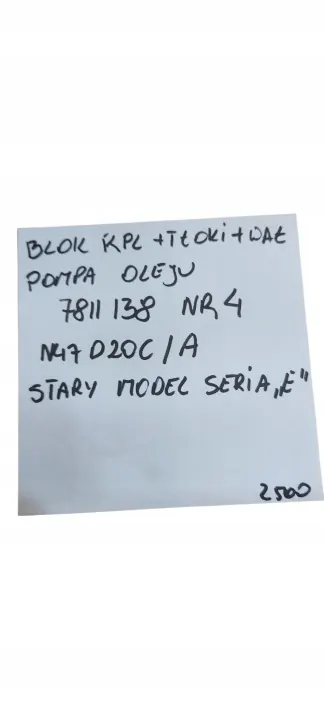 BLOK KPL +TŁOKI+WAŁ
POMPA OLEJU
7811138 NR 4
N47 D20C/A
STARY MODEL SERIA „E"
2500